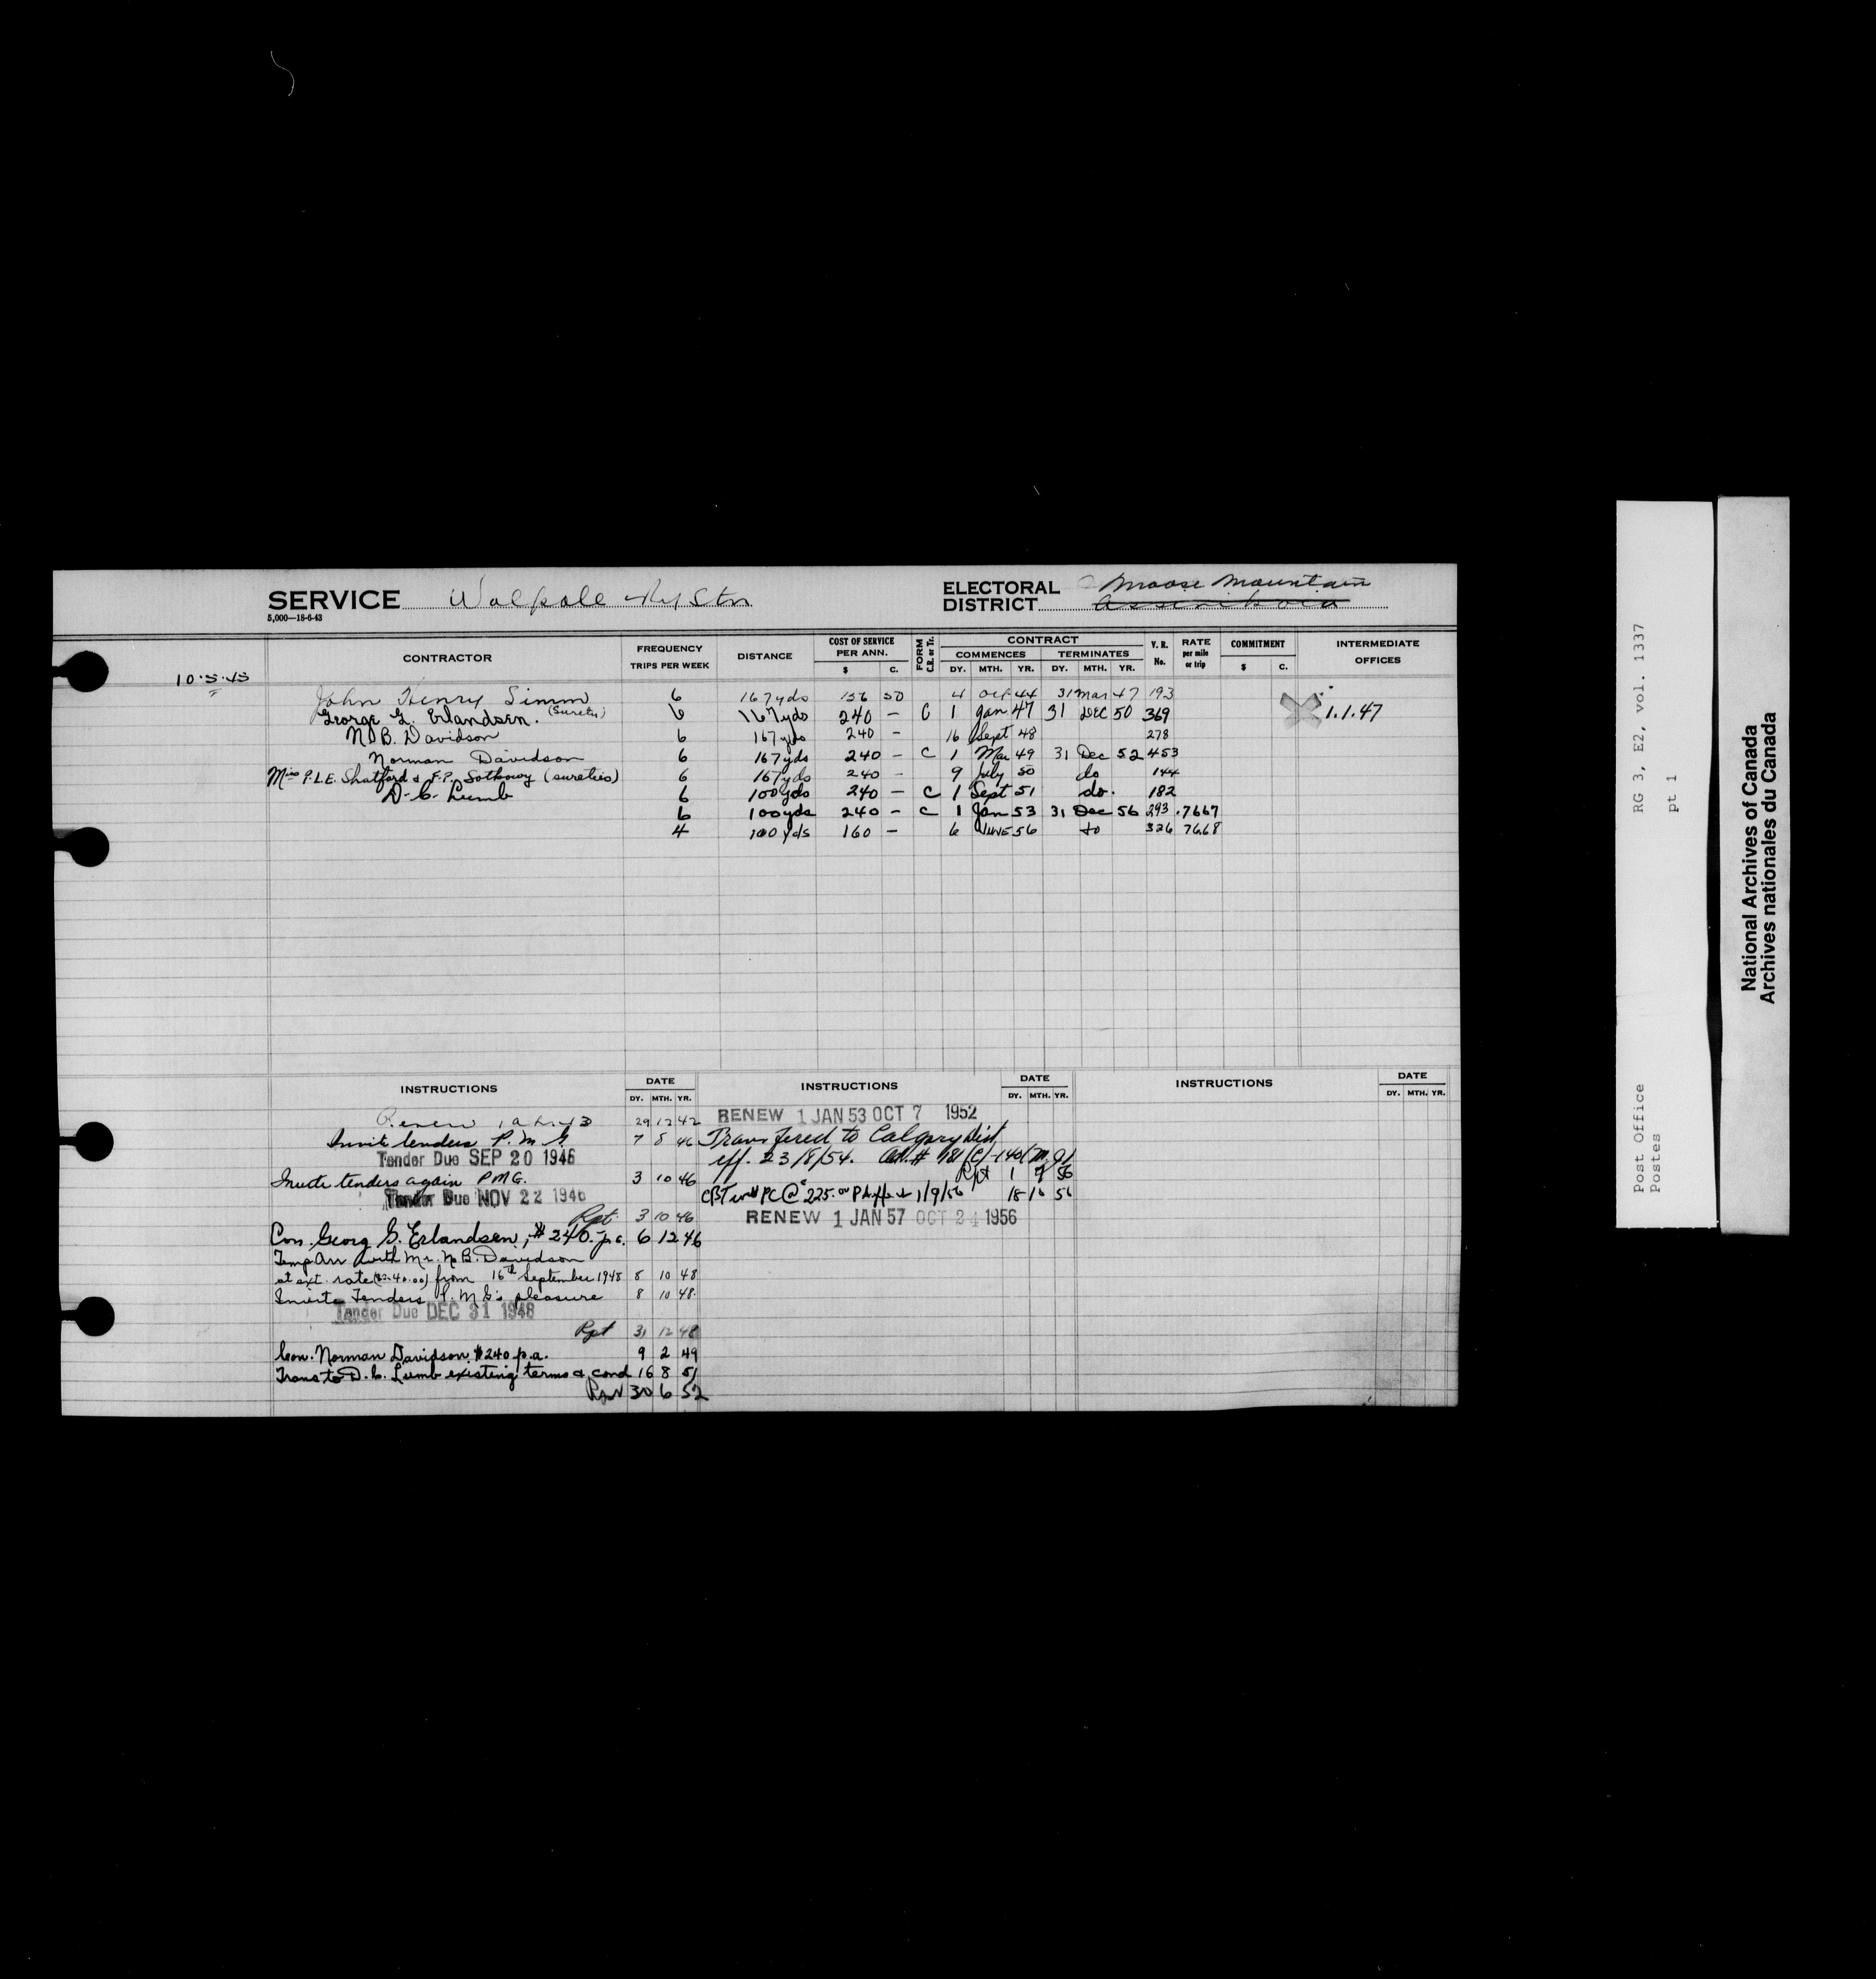 SERVICE Walpole Ry Stn
5,000—18-6-43
ELECTORAL DISTRICT Moose Mountain
Assiniboia
CONTRACTOR FREQUENCY TRIPS PER WEEK DISTANCE COST OF SERVICE PER ANN. $ C. FORM C.R. or Tr. CONTRACT COMMENCES DY. MTH. YR. TERMINATES DY. MTH. YR. V. R. No. RATE per mile or trip COMMITMENT $ C. INTERMEDIATE OFFICES
10.5.45
John Henry Simm 6 167 yds 156 50 4 Oct 44 31 Mar 47 193
George G. Erlandsen. (Surety) 6 167 yds 240 – C 1 Jan 47 31 DEC 50 369 1.1.47
N. B. Davidson 6 167 yds 240 – 16 Sept 48 278
Norman Davidson 6 167 yds 240 – C 1 Mar 49 31 Dec 52 453
Miss P.L.E. Shatford & F.P. (sureties) 6 167 yds 240 – 9 July 50 do 144
D. C. Lumb 6 100 yds 240 – C 1 Sept 51 do. 182
6 100 yds 240 – C 1 Jan 53 31 Dec 56 293 .7667
4 100 yds 160 – 6 JUNE 56 do 326 7668
INSTRUCTIONS DATE DY. MTH. YR.
Renew 29 12 42
Invite tenders P.M.G. 7 8 46
Tender Due SEP 20 1946
Invite tenders again PMG. 3 10 46
Tender Due NOV 22 1946
Rpt 3 10 46
Con. Georg G. Erlandsen, $240. p.a. 6 12 46
Temp Arr with Mr. N. B. Davidson
at ext. rate ($240.00) from 16th September 1948 8 10 48
Invite Tenders P.M.G's pleasure 8 10 48.
Tender Due DEC 31 1948
Rpt 31 12 48
Con. Norman Davidson $240 p.a. 9 2 49
Trans to D. C. Lumb existing terms & cond 16 8 51
Rpt 30 6 52
INSTRUCTIONS DATE DY. MTH. YR.
RENEW 1 JAN 53 OCT 7 1952
Transfered to Calgary Dist
eff. 23/8/54.
Rpt 1 7 56
1/9/56
RENEW 1 JAN 57 OCT 24 1956
INSTRUCTIONS DATE DY. MTH. YR.
RG 3, E2, vol. 1337
pt 1
Post Office
Postes
National Archives of Canada
Archives nationales du Canada